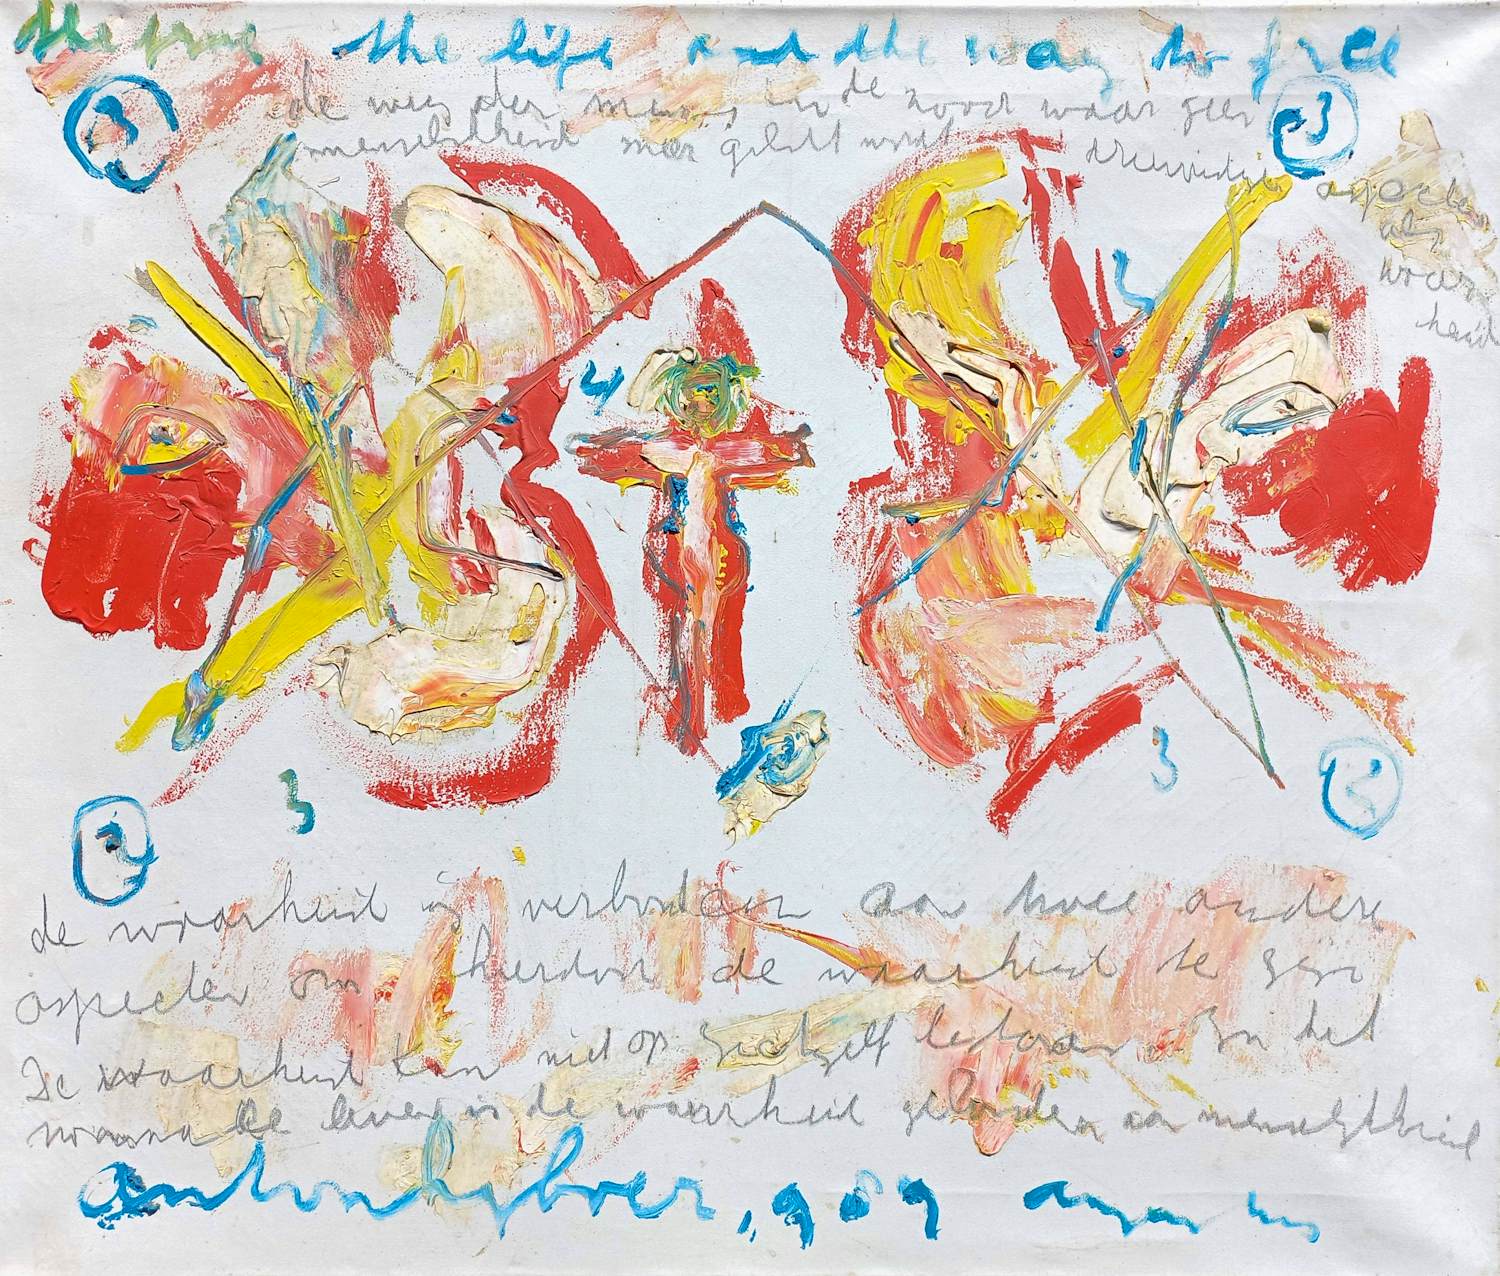 the true the life and the way to free
3 3
de weg der mens in de nood waar geen
menselijkheid meer geleeft wordt drievoudige aspecten
als
waar
heid
2
4
3 3
2 2
de waarheid is verbonden aan twee andere
aspecten om hierdoor de waarheid te zijn
De waarheid kan niet op zichzelf bestaan. In het
de leven is de waarheid gebonden aan menselijkheid
anton heyboer, 1989 augustus